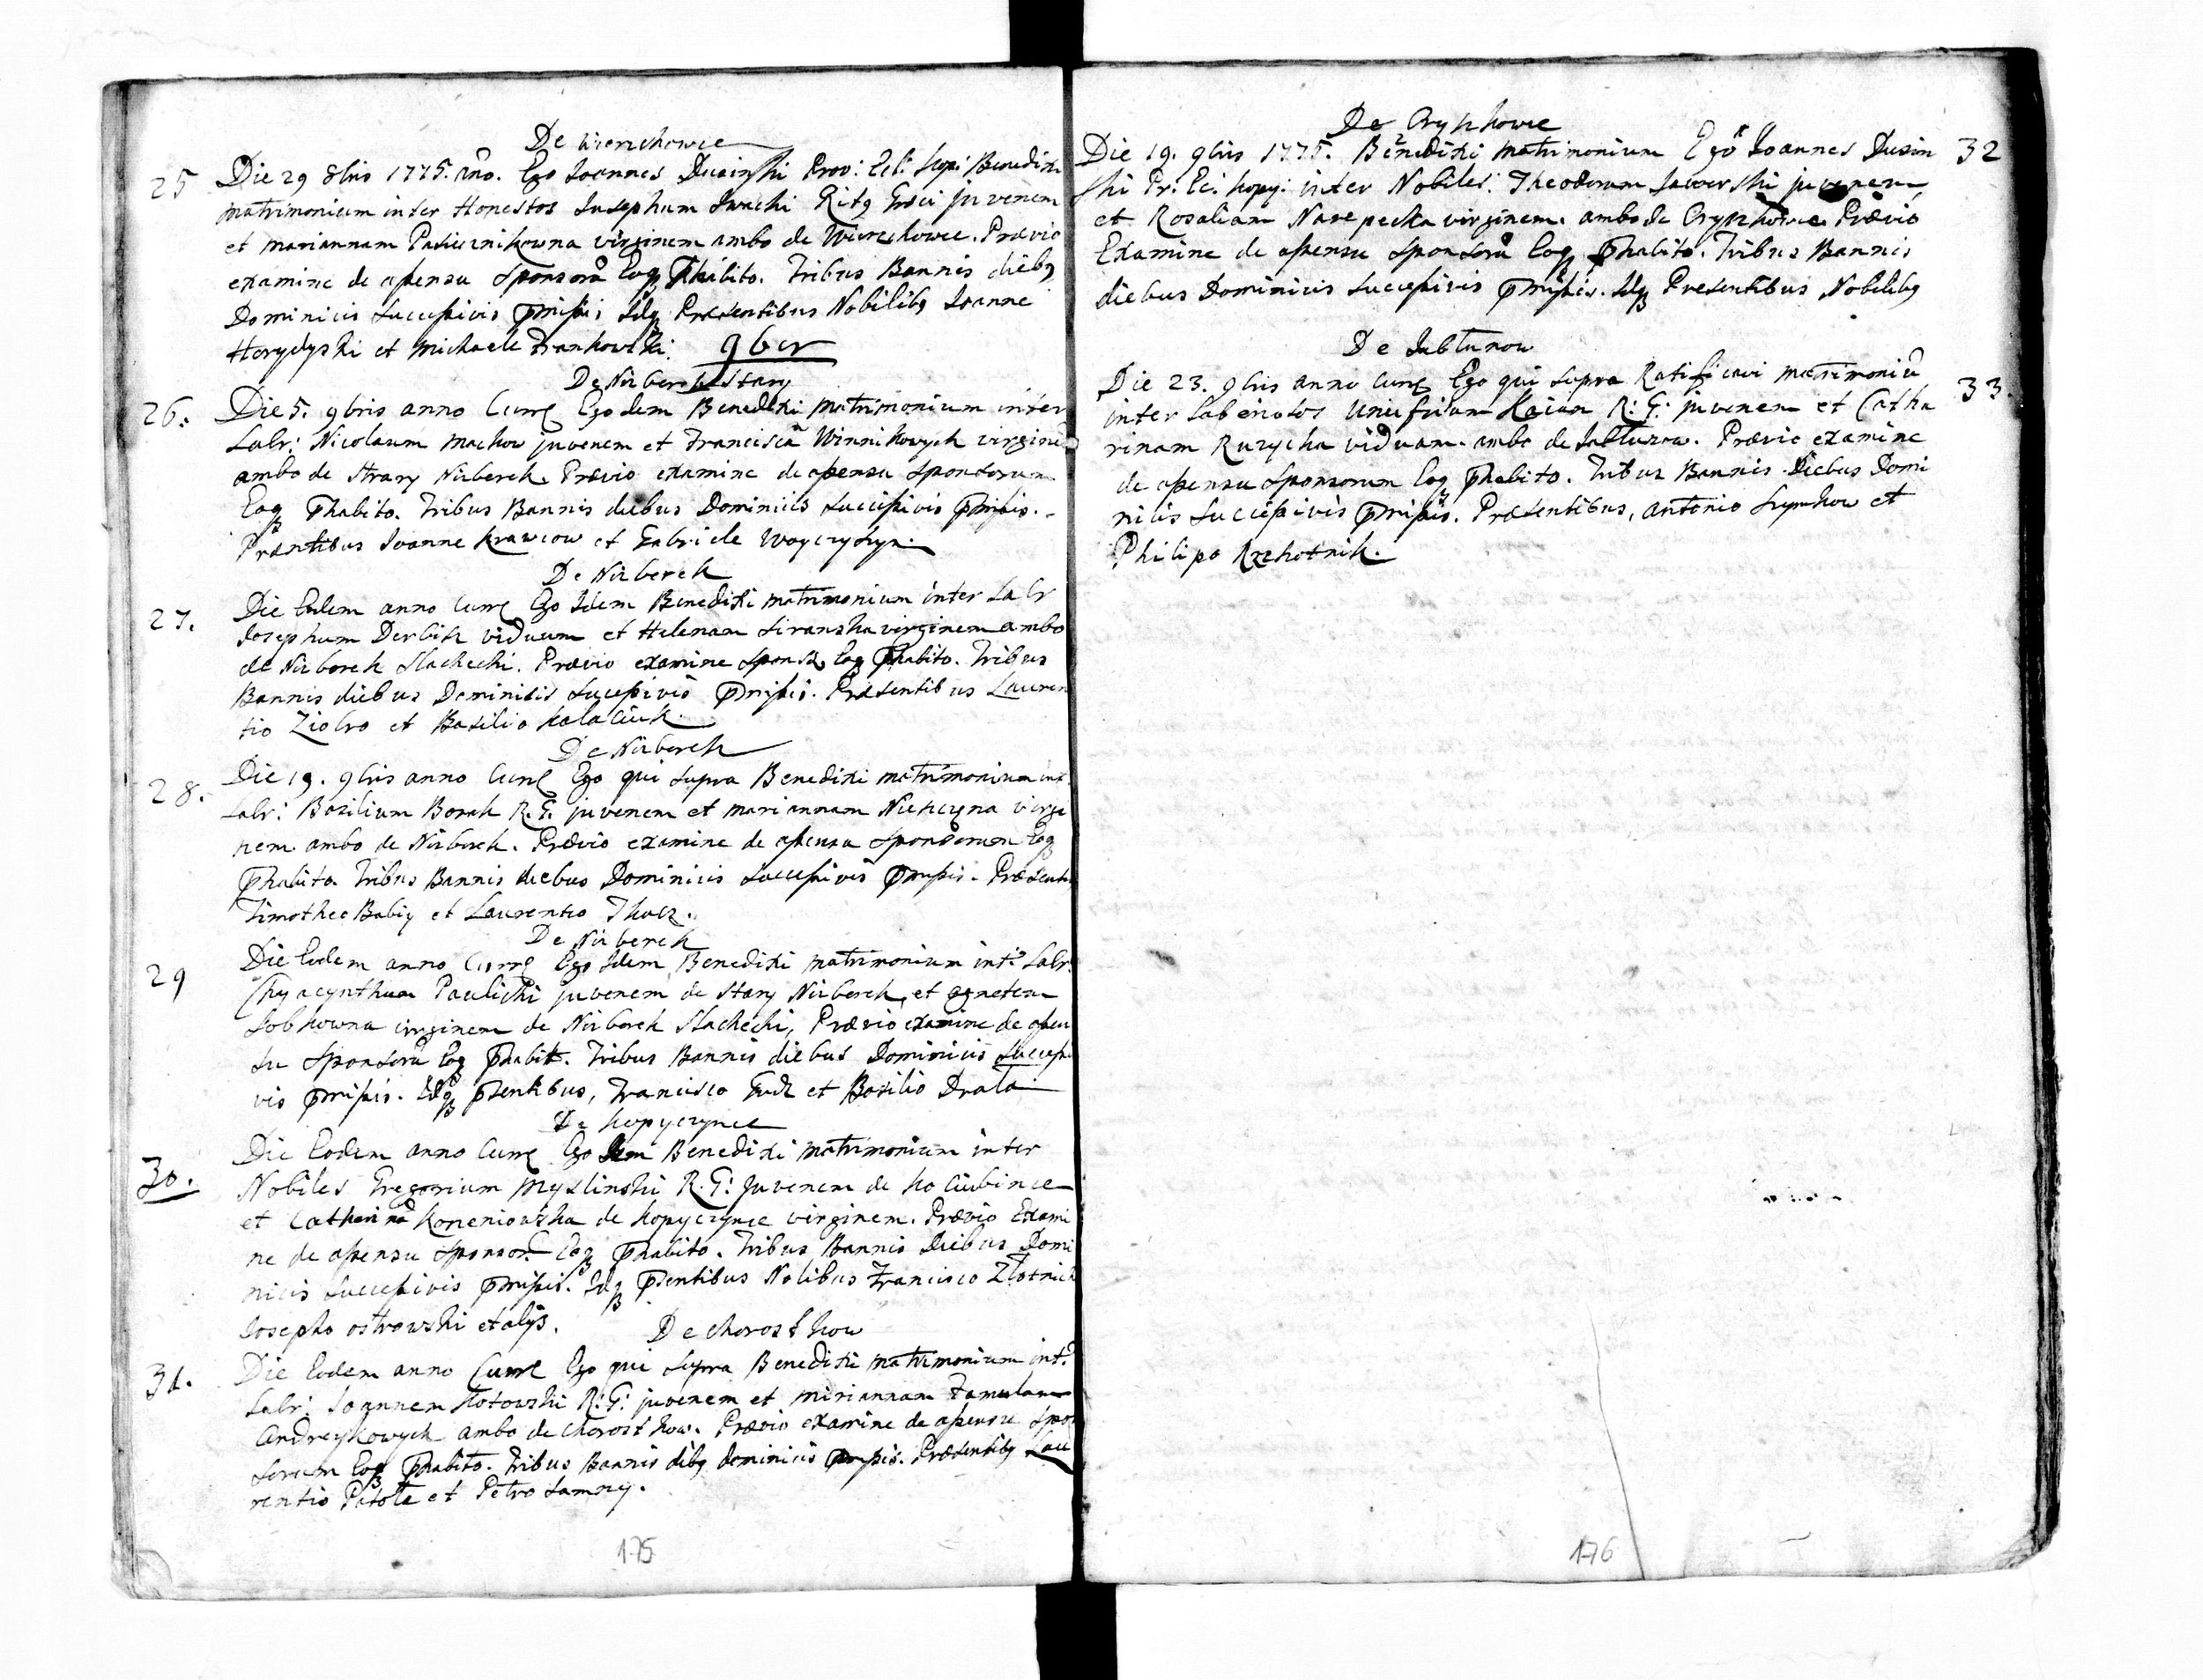 De Wierzchowce
25 Die 29 8bris 1775. Ano. Ego Joannes Dusinski Prov: Ecl: Kop: Benedixi
matrimonium inter Honestos Josephum Iwachi Ritg Graeci juvenem
et mariannam Pasiecznikowna virginem ambo de Wierzchowce. Prævio
examine de assensu Sponsorũ Eoqʒ perhabito. Tribus Bannis diebg
Dominicis Successivis præmissis Idqʒ Præsentibus Nobilibg Joanne
Horydyski et Michaele Frankowski. 9ber
De Niżborek Stary
26. Die 5. 9bris anno Curre Ego Idem Benedixi Matrimonium inter
Labr: Nicolaum Machow juvenem et Franciscã Winnikowych virginẽ
ambo de Stary Niżborek. Prævio examine de assensu Sponsorum
Eoqʒ perhabito. Tribus Bannis diebus Dominicis Successivis præmissis.
Præntibus Joanne Krawcow et Gabriele Woyczyszyn.
De Niżborek
27. Die Eodem anno Curre Ego Idem Benedixi matrimonium inter Labr
Josephum Derbisz viduum et Helenam Siranska virginem ambo
de Niżborek Slachecki. Prævio examine Spons Eoq perhabito. Tribus
Bannis diebus Dominicis Sucessivis præmissis. Præsentibus Lauren
tio Ziobro et Basilio Kalaciuk.
De Niżborek
28. Die 19. 9bris anno Curre Ego qui Supra Benedixi matrimonium int
Labr: Basilium Borek R. G. juvenem et mariannam virgi
nem ambo de Niżborek. Prævio examine de assensu Sponsorum Eoqʒ
perhabito. Tribus Bannis diebus Dominicis Successivis præmissis. Præsentib
Timotheo Babiy et Laurentio Tkacz.
De Niżborek
29 Die Eodem anno Curre Ego Idem Benedixi matrimonium int: Labr:
Chyacynthum Paulicki juvenem de Stary Niżborek, et agnetem
Sobkowna virginem de Niżborek Slachecki, Prævio examine de assen
su Sponsorũ Eoqʒ perhabit. Tribus Bannis diebus Dominicis Successi
vis præmissis. Idqʒ præsentibus, Francisco Gudz et Basilio Drala
De Kopyczynce
30. Die Eodem anno Curre Ego Idem Benedixi matrimonium inter
Nobiles Gregorium Myslinski R. G: juvenem de Kociubince
et Catharinã Korzeniowska de Kopyczynce virginem. Prævio Exami
ne de assensu Sponsor Eoqʒ perhabito. Tribus Bannis Diebus Domi
nicis Successivis præmissis. Idqʒ præsentibus Nolibus Francisco Zlotnick
Josepho ostrowski et alys.
De Chorostkow
31. Die Eodem anno Curre Ego qui Supra Benedixi matrimonium int:
Labr: Joannem Kotowski R: G: juvenem et miriannam Famulam
Andreykowych ambo de Chorostkow. Prævio examine de assensu Spon
sorum Eoqʒ perhabito. Tribus Bannis dibg dominicis præmissis. Præsentibg Lau
rentio Patola et Petro Samny.
175
De Oryszkowce
Die 19. 9bris 1775. Benedixi matrimonium Ego Joannes Dusin 32
ski Pr: Ec: Kopy: inter Nobiles: Theodorum Jaworski juvenem
et Rosaliam Narepecka virginem. ambo de Oryszkowce Prævio
Examine de assensu Sponsorũ Eoqʒ perhabito. Tribus Bannis
diebus Dominicis Successivis præmissis. Idqʒ Præsentibus Nobilibg
De Jabłunow
Die 23. 9bris anno Curre Ego qui Supra Ratificavi matrimoniũ 33.
inter Laboriosos Onufrium R: G: juvenem et Catha
rinam Ruzycka viduam. ambo de Jabłunow. Prævio examine
de assensu Sponsorum Eoqʒ perhabito. Tribus Bannis Diebus Domi
nicis Successivis præmissis. Præsentibus, Antonio Szymkow et
Philipo
176